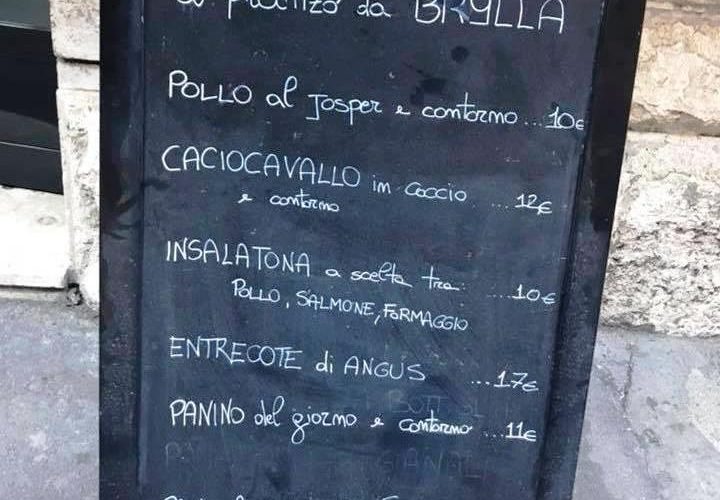 pranzo da BRYLLA
POLLO al JOSPER e contorno ... 10€
CACIOCAVALLO in coccio ... 12€
e contorno
INSALATONA a scelta tra: ... 10€
POLLO, SALMONE, FORMAGGIO
ENTRECOTE di ANGUS ... 17€
PANINO del giorno e contorno ... 11€